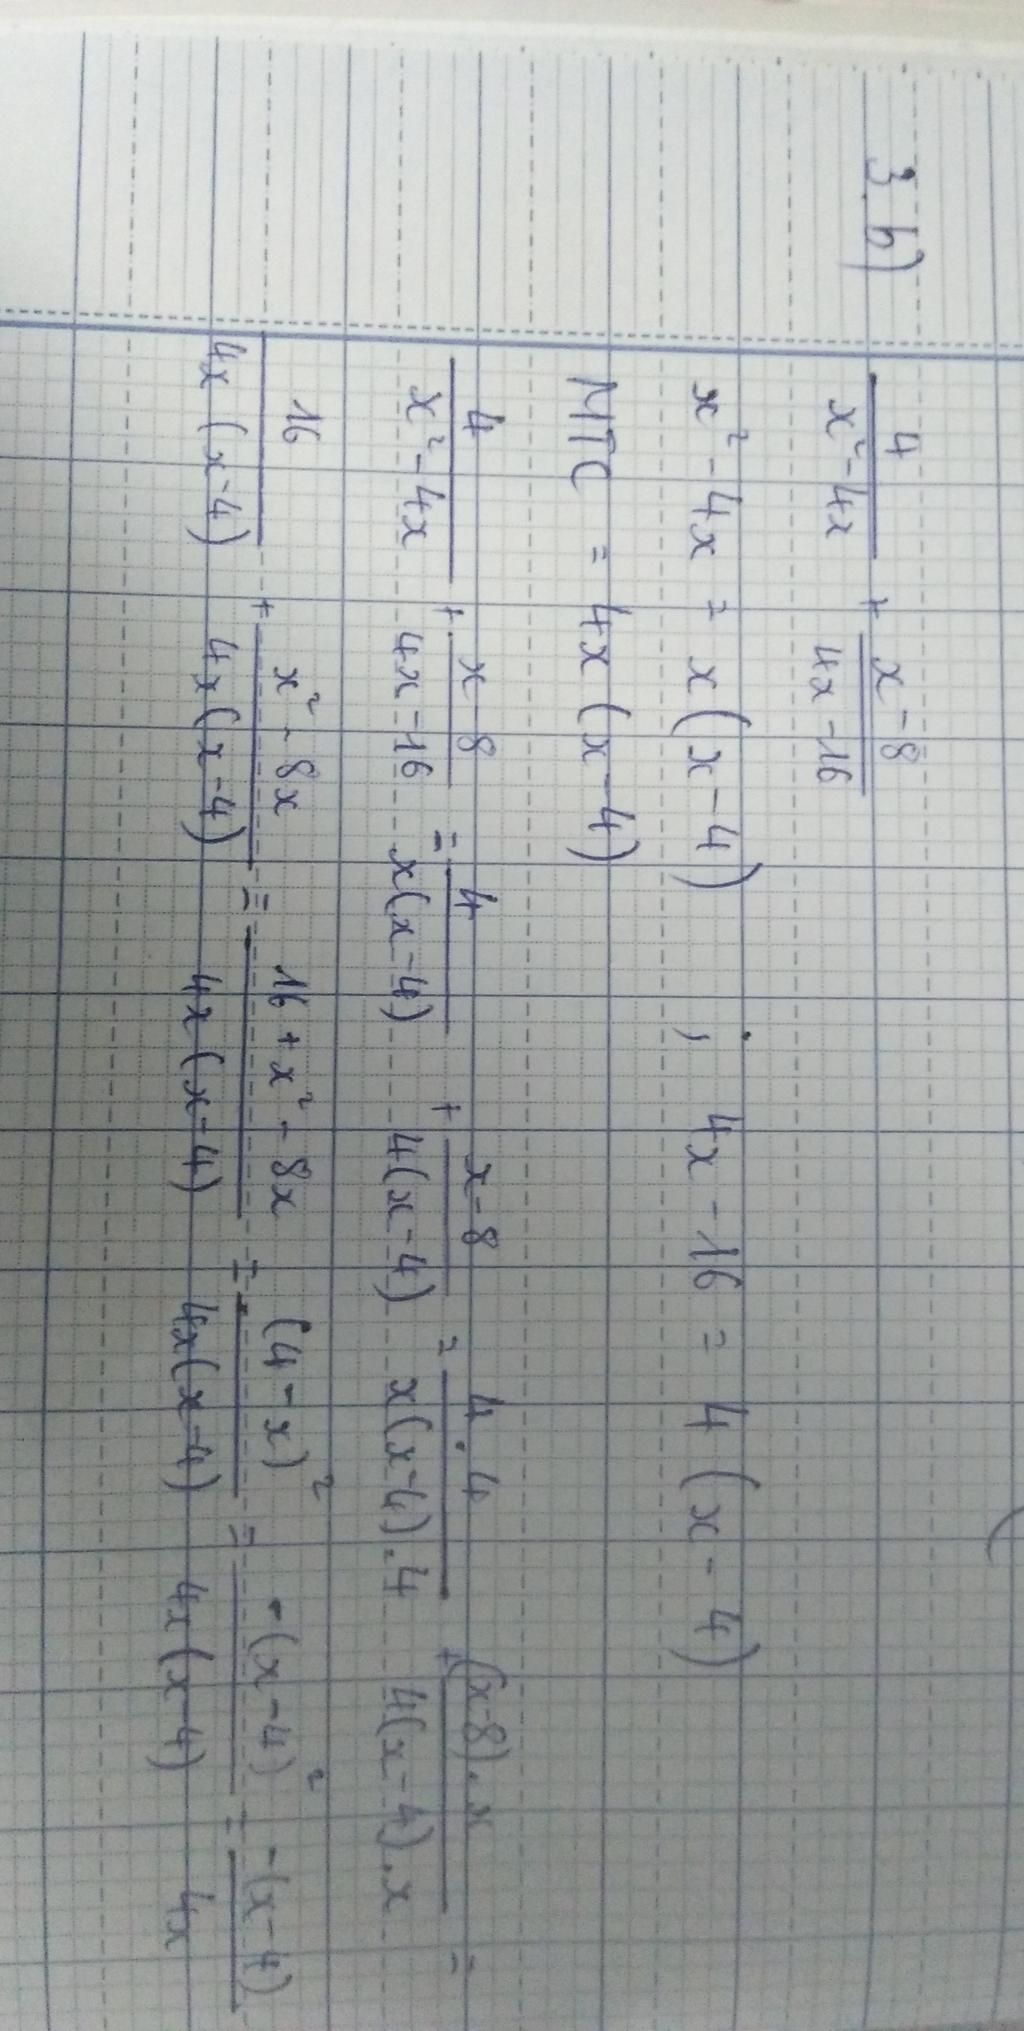 3 b) 4/(x² - 4x) + (x - 8)/(4x - 16)
x² - 4x = x(x - 4) ; 4x - 16 = 4(x - 4)
MTC = 4x(x - 4)
4/(x² - 4x) + (x - 8)/(4x - 16) = 4/(x(x - 4)) + (x - 8)/(4(x - 4)) = (4 . 4)/(x(x - 4) . 4) + ((x - 8) . x)/(4(x - 4) . x) =
16/(4x(x - 4)) + (x² - 8x)/(4x(x - 4)) = (16 + x² - 8x)/(4x(x - 4)) = (4 - x)²/(4x(x - 4)) = -(x - 4)²/(4x(x - 4)) = -(x - 4)/(4x)